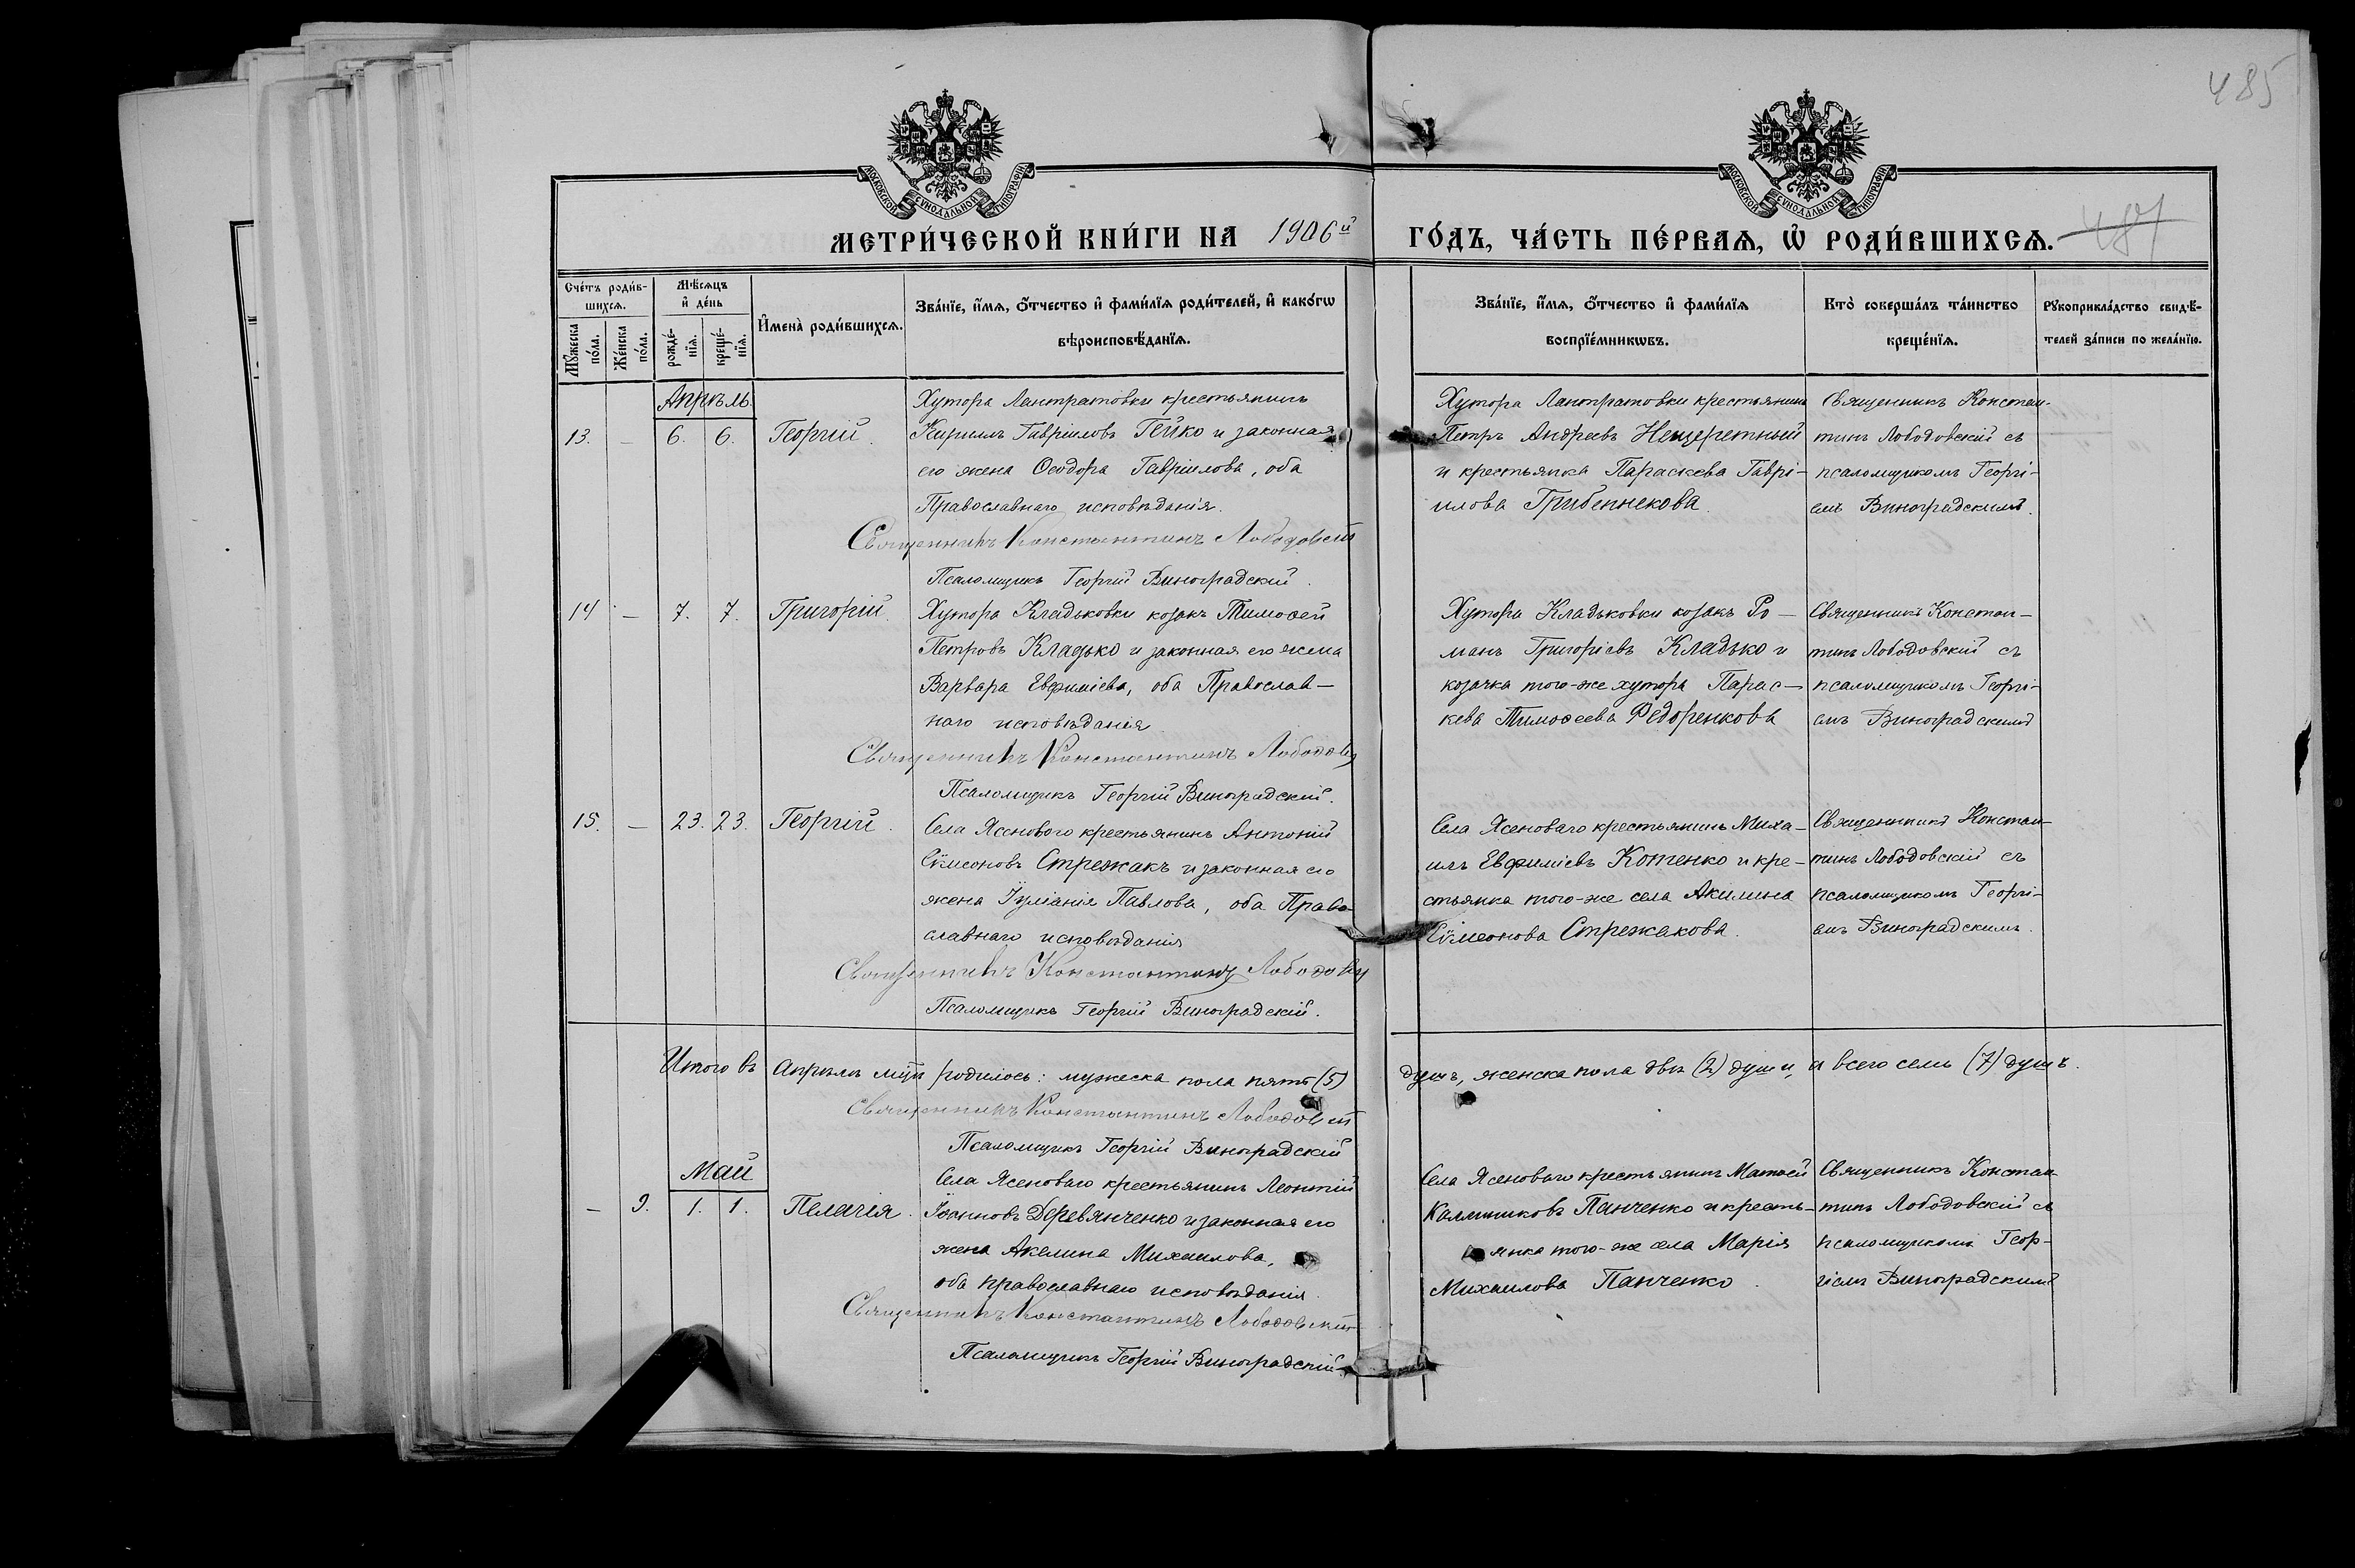 485
МОСКОВСКОЙ СѴНОДАЛЬНОЙ ТИПОГРАФІИ
МОСКОВСКОЙ СѴНОДАЛЬНОЙ ТИПОГРАФІИ
МЕТРИ́ЧЕСКОЙ КНИ́ГИ НА 1906й ГО́ДЪ, ЧА́СТЬ ПЕ́РВАѦ, Ѡ҆ РОДИ́ВШИХСѦ.
Сче́тъ роди́в-
шихсѧ.
Мꙋ́жеска по́ла.
Же́нска по́ла.
Мѣ́сѧцъ
и҆ де́нь
рожде́-
нїѧ.
креще́-
нїѧ.
И҆мена̀ роди́вшихсѧ.
Зва́нїе, и҆́мѧ, ѻ҆́тчество и҆ фами́лїѧ роди́телей, и҆ како́гѡ
вѣроисповѣ́данїѧ.
Зва́нїе, и҆́мѧ, ѻ҆́тчество и҆ фами́лїѧ
воспрїе́мникѡвъ.
Кто̀ соверша́лъ та́инство
креще́нїѧ.
Рꙋкоприкла́дство свидѣ́-
телей за́писи по жела́нїю.
Апрѣль
13. — 6. 6. Георгій.
Хутора Лантратовки крестьянинъ
Кириллъ Гавріиловъ Гейко и законная
его жена Ѳеодора Гавріилова, оба
Православнаго исповѣданія.
Священникъ Константинъ Лободовскій
Псаломщикъ Георгій Виноградскій.
Хутора Лантратовки крестьянинъ
Петръ Андреевъ Нещеретный
и крестьянка Параскева Гаврі-
илова Грибенникова.
Священникъ Констан-
тинъ Лободовскій съ
псаломщикомъ Георгі-
емъ Виноградскимъ.
14 — 7. 7. Григорій.
Хутора Кладьковки козакъ Тимоѳей
Петровъ Кладько и законная его жена
Варвара Евфиміева, оба Православ-
наго исповѣданія
Священникъ Константинъ Лободовс
Псаломщикъ Георгій Виноградскій.
Хутора Кладьковки козакъ Ро-
манъ Григоріевъ Кладько и
козачка того-же хутора Парас-
кева Тимоѳеева Федоренкова
Священникъ Констан-
тинъ Лободовскій съ
псаломщикомъ Георгі-
емъ Виноградскимъ
15. — 23. 23. Георгій.
Села Ясеноваго крестьянинъ Антоній
Сѵмеоновъ Стрежакъ и законная его
жена Іуліанія Павлова, оба Право-
славнаго исповѣданія
Священникъ Константинъ Лободовс
Псаломщикъ Георгій Виноградскій.
Села Ясеноваго крестьянинъ Миха-
илъ Евфиміевъ Котенко и кре-
стьянка того-же села Акилина
Сѵмеонова Стрежакова.
Священникъ Констан-
тинъ Лободовскій съ
псаломщикомъ Георгі-
емъ Виноградскимъ.
Итого въ Апрѣлѣ м-цѣ родилось: мужеска пола пять (5) душъ, женска пола двѣ (2) души, а всего семь (7) душъ.
Священникъ Константинъ Лободовскій
Псаломщикъ Георгій Виноградскій
Май
— 9. 1. 1. Пелагія.
Села Ясеноваго крестьянинъ Леонтій
Іоанновъ Деревянченко и законная его
жена Акелина Михаилова,
оба православнаго исповѣданія.
Священникъ Константинъ Лободовскій
Псаломщикъ Георгій Виноградскій.
Села Ясеноваго крестьянинъ Матѳей
Каллиниковъ Панченко и кресть-
янка того-же села Марія
Михаилова Панченко.
Священникъ Констан-
тинъ Лободовскій съ
псаломщикомъ Геор-
гіемъ Виноградскимъ